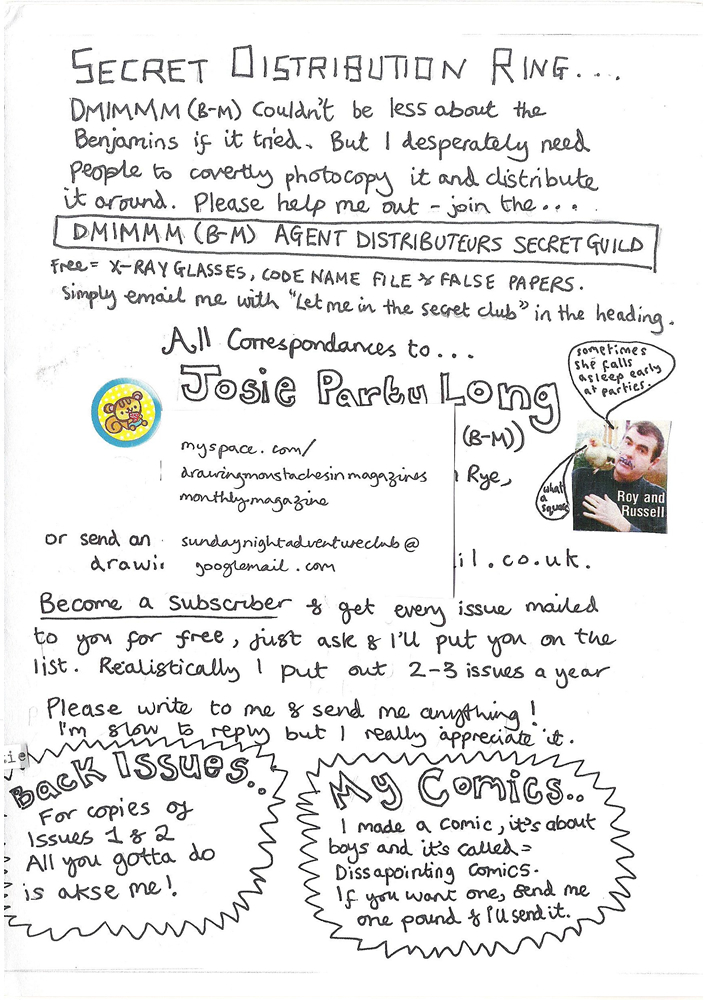 SECRET DISTRIBUTION RING...
DMIMMM (B-M) Couldn't be less about the
Benjamins if it tried. But I desperately need
People to covertly photocopy it and distribute
it around. Please help me out - join the...
DMIMMM (B-M) AGENT DISTRIBUTEURS SECRET GUILD
Free = X-RAY GLASSES, CODE NAME FILE & FALSE PAPERS.
Simply email me with "Let me in the secret club" in the heading.
All Correspondances to...
Josie Partu Long
(B-M))
sometimes
she falls
asleep early
at parties.
what
a
square
Roy and
Russell
myspace.com/
drawingmoustachesinmagazines
monthlymagazine
Rye,
or send an
drawi
sundaynightadventureclub@
googlemail.com
il.co.uk.
Become a subscriber & get every issue mailed
to you for free, just ask & I'll put you on the
list. Realistically I put out 2-3 issues a year
Please write to me & send me anything!
I'm slow to reply but I really appreciate it.
sie
Back Issues..
For copies of
Issues 1 & 2
All you gotta do
is akse me!
My Comics..
I made a comic, it's about
boys and it's called=
Dissapointing Comics.
If you want one, send me
one pound & I'll send it.